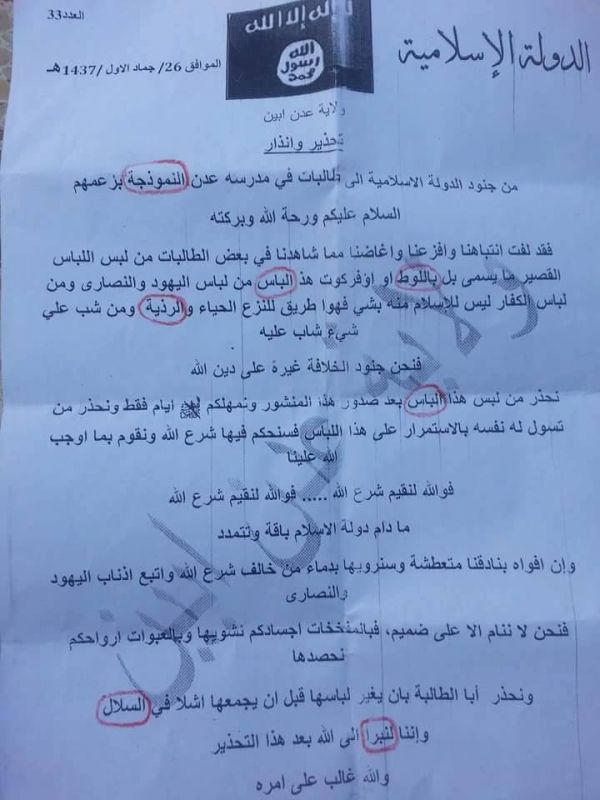 العدد33
الدولة الإسلامية
الموافق 26/ جماد الاول /1437هـ
لا إله إلا الله
الله
رسول
محمد
ولاية عدن ابين
تحذير وانذار
من جنود الدولة الاسلامية الى طالبات في مدرسه عدن النموذجة بزعمهم
السلام عليكم ورحة الله وبركته
فقد لفت انتباهنا وافزعنا واغاضنا مما شاهدنا في بعض الطالبات من لبس اللباس
القصير ما يسمى بل باللوط او اوفركوت هذ الباس من لباس اليهود والنصارى ومن
لباس الكفار ليس للإسلام منه بشي فهوا طريق للنزع الحياء والرذية ومن شب علي
شيء شاب عليه
فنحن جنود الخلافة غيرة على دين الله
نحذر من لبس هذا الباس بعد صدور هذا المنشور ونمهلكم ايام فقط ونحذر من
تسول له نفسه بالاستمرار على هذا اللباس فسنحكم فيها شرع الله ونقوم بما اوجب
الله علينا
فوالله لنقيم شرع الله ..... فوالله لنقيم شرع الله
ما دام دولة الاسلام باقة وتتمدد
وإن افواه بنادقنا متعطشة وسنرويها بدماء من خالف شرع الله واتبع اذناب اليهود
والنصارى
فنحن لا ننام الا على ضميم، فبالمفخخات اجسادكم نشويها وبالعبوات ارواحكم
نحصدها
ونحذر أبا الطالبة بان يغير لباسها قبل ان يجمعها اشلا في السلال
وإننا لنبرا الى الله بعد هذا التحذير
والله غالب على امره
ولاية عدن ابين